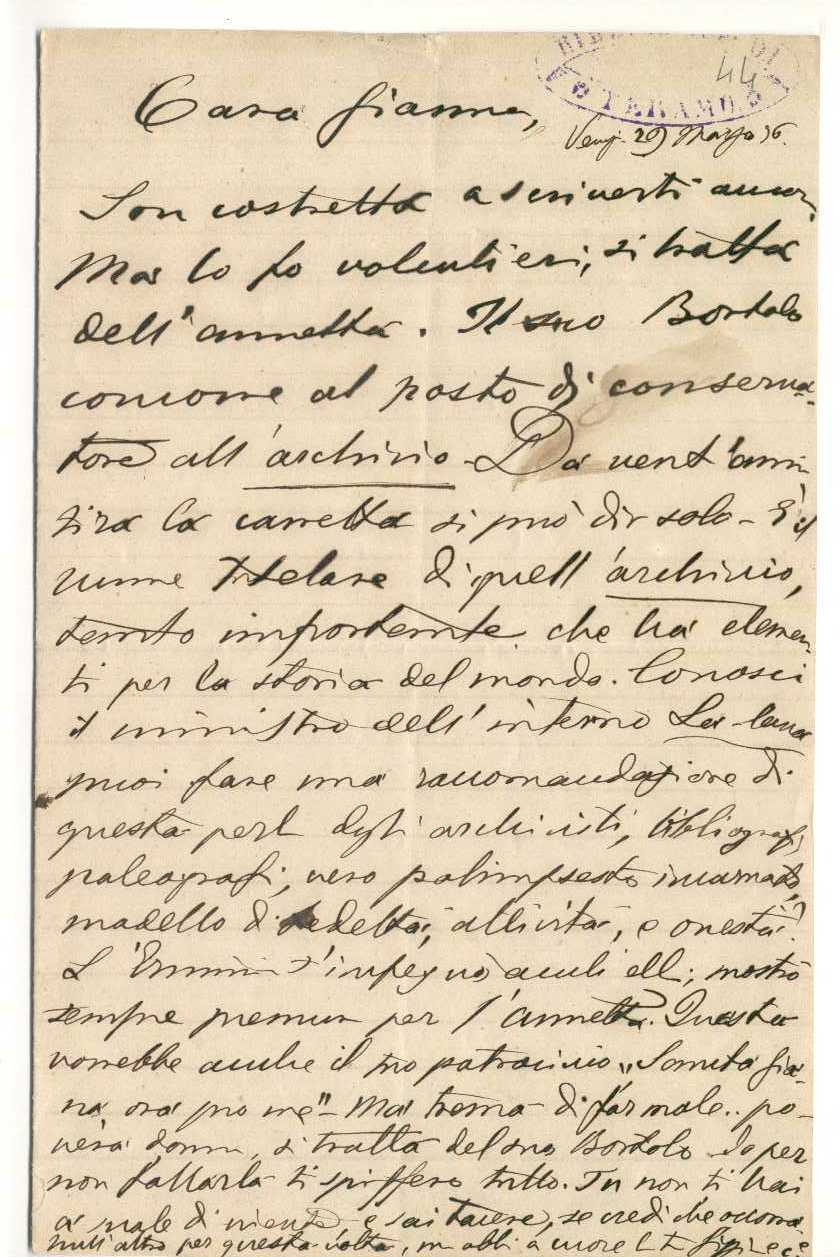 44
TERAMO
Cara Gianna,
29 Marzo 96.
Son costretta a scriverti ancor.
Ma lo fo volentieri, si tratta
dell'annetta. Il suo Bortolo
concorre al posto di conserva-
tore all'archivio - Da vent'anni
tira la carretta si può dir solo - È il
nume tutelare di quell'archivio,
tanto importante che ha elemen-
ti per la storia del mondo. Conosci
il ministro dell'interno
puoi fare una raccomandazione di
questa perla degli archivisti, bibliografi,
paleografi, vero palimpsesto incarnato,
modello di fedeltà, attività, e onestà?
s'impegnò anch'ell; mostrò
sempre premur per l'annetta. Questa
vorrebbe anche il tuo patrocinio "Santa Gia-
na ora pro me" - Ma trema di far male.. po-
vera donna, si tratta del suo Bortolo Io per
non fallarla ti spiffero tutto. Tu non ti hai
a male di niente, e sai tacere, se credi che occorra.
null'altro per questa volta, m abbi a cuore